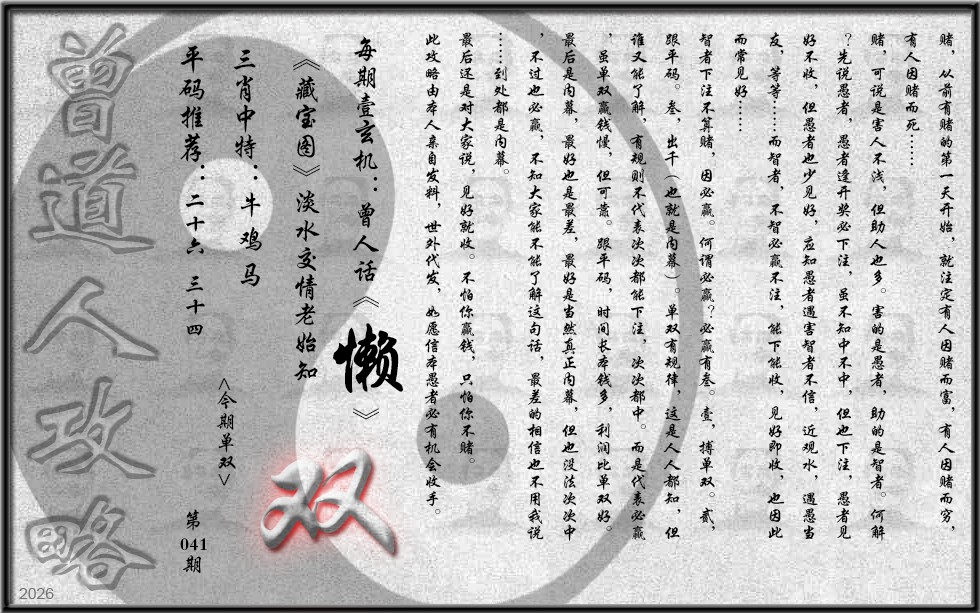 赌，从前有赌的第一天开始，就注定有人因赌而富，有人因赌而穷，
有人因赌而死……
赌，可说是害人不浅，但助人也多。害的是愚者，助的是智者。何解
？先说愚者，愚者逢开奖必下注，虽不知中不中，但也下注，愚者见
好不收，但愚者也少见好，应知愚者遇害智者不信，近观水，遇愚当
友，等等……而智者，不智必赢不注，能下能收，见好即收，也因此
而常见好……
智者下注不算赌，因必赢。何谓必赢？必赢有叁。壹，搏单双。贰，
跟平码。叁，出千（也就是内幕）。单双有规律，这是人人都知，但
谁又能了解，有规则不代表次次都能下注，次次都中。而是代表必赢
，虽单双赢钱慢，但可靠。跟平码，时间长本钱多，利润比单双好。
最后是内幕，最好也是最差，最好是当然真正内幕，但也没法次次中
，不过也必赢，不知大家能不能了解这句话，最差的相信也不用我说
……到处都是内幕。
最后还是对大家说，见好就收。不怕你赢钱，只怕你不赌。
此攻略由本人亲自发料，世外代发，如愿信本愚者必有机会收手。
每期壹玄机：曾人话《懒》
《藏宝图》淡水交情老始知
三肖中特：牛 鸡 马
<今期单双>
双
平码推荐：二十六 三十四
第
041
期
曾道人攻略
2026